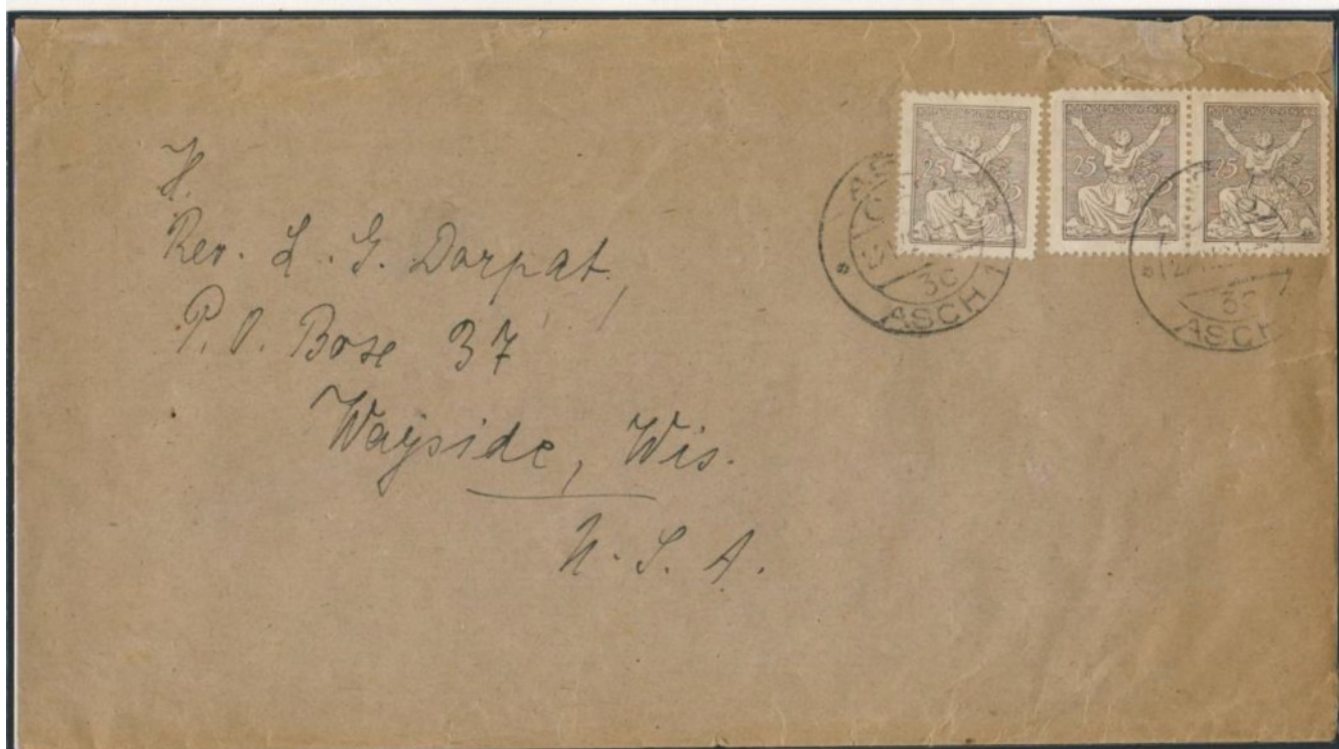 Rev. L. G. Dorpat,
P. O. Box 37
Wayside, Wis.
U. S. A.
25 25
25 25
25 25
3c
ASCH 1
3c
ASCH